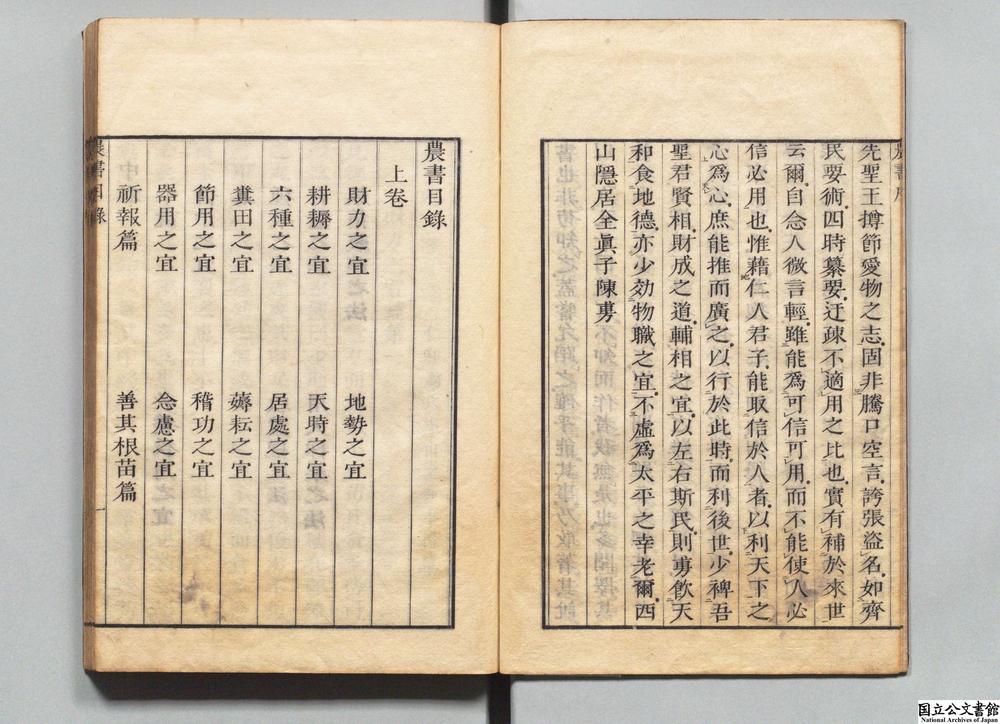 先聖王撙節愛物之志固非騰口空言誇張盜名如齊
民要術四時纂要迂疎不適用之比也實有補於來世
云爾自念人微言輕雖能爲可信可用而不能使人必
信必用也惟藉仁人君子能取信於人者以利天下之
心爲心庶能推而廣之以行於此時而利後世少裨吾
聖君賢相財成之道輔相之宜以左右斯民則旉飮天
和食地德亦少効物職之宜不虛爲太平之幸老爾西
山隱居全眞子陳旉
農書目錄
上卷
財力之宜 地勢之宜
耕耨之宜 天時之宜
六種之宜 居處之宜
糞田之宜 薅耘之宜
節用之宜 稽功之宜
器用之宜 念慮之宜
祈報篇 善其根苗篇
農書目錄 一
国立公文書館
National Archives of Japan